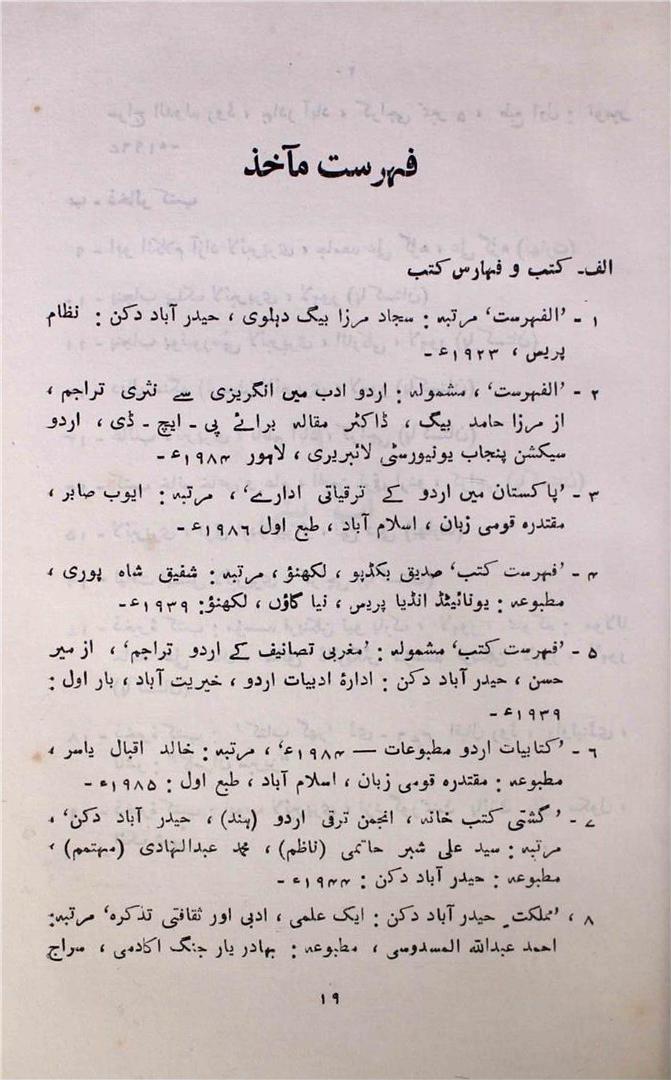 فہرست مآخذ
الف۔ کتب و فہارس کتب
۱ - ’الفہرست‘ مرتبہ : سجاد مرزا بیگ دہلوی ، حیدر آباد دکن : نظام
پریس ، ۱۹۲۳ء -
۲ - ’الفہرست‘ ، مشمولہ : اردو ادب میں انگریزی سے نثری تراجم ،
از مرزا حامد بیگ ، ڈاکٹر مقالہ برائے پی - ایچ - ڈی ، اردو
سیکشن پنجاب یونیورسٹی لائبریری ، لاہور ۱۹۸۴ء -
۳ - ’پاکستان میں اردو کے ترقیاتی ادارے‘ ، مرتبہ : ایوب صابر ،
مقتدرہ قومی زبان ، اسلام آباد ، طبع اول ۱۹۸۶ء -
۴ - ’فہرست کتب‘ صدیق بکڈپو ، لکھنؤ ، مرتبہ : شفیق شاہ پوری ،
مطبوعہ : یونائیٹڈ انڈیا پریس ، نیا گاؤں ، لکھنؤ : ۱۹۳۹ء -
۵ - ’فہرست کتب‘ مشمولہ : ’مغربی تصانیف کے اردو تراجم‘ ، از میر
حسن ، حیدر آباد دکن : ادارۂ ادبیات اردو ، خیریت آباد ، بار اول :
۱۹۳۹ء -
۶ - ’کتابیات اردو مطبوعات — ۱۹۸۴ء‘ ، مرتبہ : خالد اقبال یاسر ،
مطبوعہ : مقتدرہ قومی زبان ، اسلام آباد ، طبع اول : ۱۹۸۵ء -
۷ - ’گشتی کتب خانہ ، انجمن ترقی اردو (ہند) ، حیدر آباد دکن‘ ،
مرتبہ : سید علی شبر حاتمی (ناظم) ، محمد عبدالہادی (مہتمم) ،
مطبوعہ : حیدر آباد دکن : ۱۹۴۴ء -
۸ ، ’مملکتِ حیدر آباد دکن : ایک علمی ، ادبی اور ثقافتی تذکرہ‘ مرتبہ :
احمد عبداللہ المسدوسی ، مطبوعہ : بہادر یار جنگ اکادمی ، سراج
۱۹